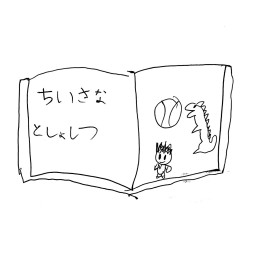 ちいさな
としょしつ